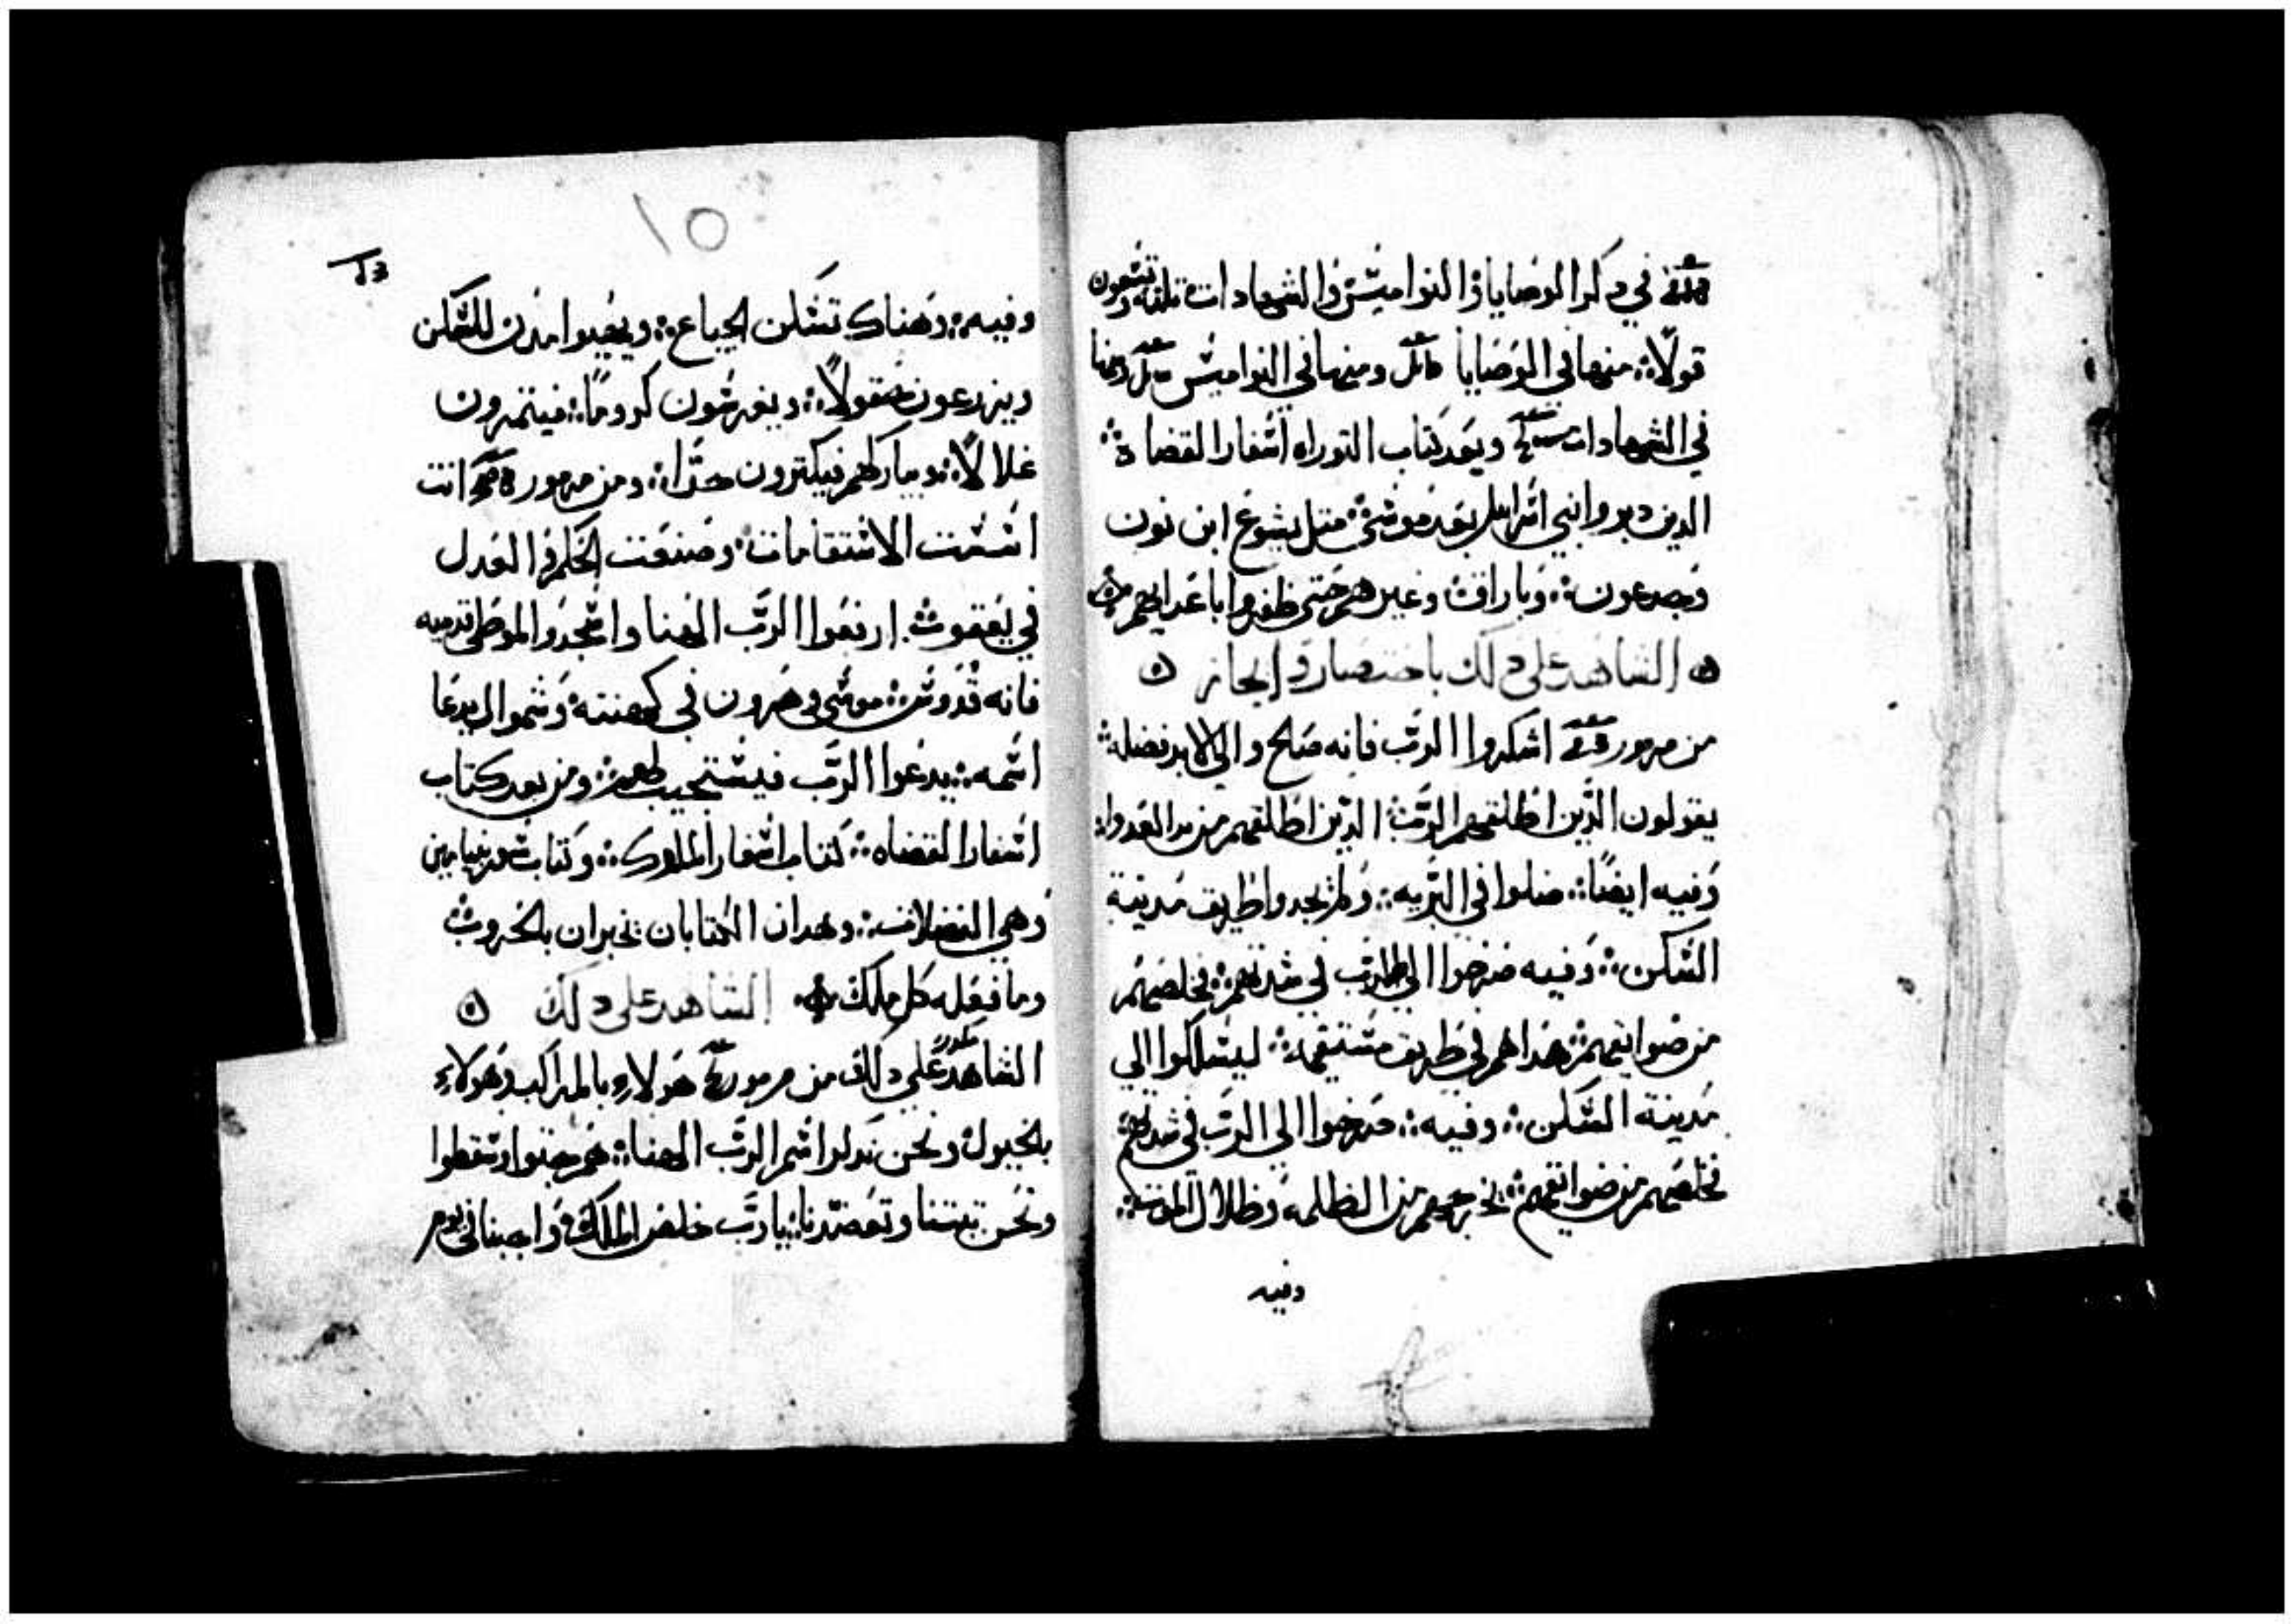 في ذكر الوصايا والنواميس والشهادات ثلثه وتسعون
قولًا: منها في الوصايا ومنها في النواميس ومنها
في الشهادات وبعد كتاب التوراه اسفار القضاة
الدين دبروا بني اسراييل بعد موسي: متل يشوع ابن نون
وجدعون: وباراق: وغيرهم حتي ظفروا باعدايهم
الشاهد علي دلك باختصار وايجاز
من مزمور اشكروا الرب فانه صالح والي الابد فضله:
يقولون الدين اطلقهم الرب: الدين اطلقهم من يد العدوا:
وفيه ايضًا: ضلوا في البريه: ولم يجدوا طريق مدينة
السكن: وفيه صرخوا الي الرب في شدتهم: فخلصهم
من ضوايقهم: هداهم في طريق مستقيمه: ليسلكوا الي
مدينة السكن: وفيه: صرخوا الي الرب في شدتهم
فخلصهم من ضوايقهم: يخرجهم من الظلمه وظلال الموت:
وفيه
١٥
وفيه: وهناك تسكن الجياع: ويقيموا مدن للسكن
ويزرعون حقولًا: ويغرسون كرومًا: فيتمرون
غلالًا: ويباركهم فيكترون جدًا: ومن مزمور انت
اسست الاستقامات: وصنعت الحكم والعدل
في يعقوب: ارفعوا الرب الهنا واسجدوا لموطي قدميه
فانه قدوس: موسي وهرون في كهنته: وسموال يدعا
اسمه: يدعوا الرب فيستجيب لهم: ومن بعد كتاب
اسفار القضاه: كتاب اسفار الملوك: وكتاب
وهي الفضلات: وهدان الكتابان يخبران بالحروب
وما فعله كل ملك الشاهد علي دلك
الشاهد علي دلك من مزمور هولاء بالمراكب وهولاء
بالخيول: ونحن ندكر اسم الرب الهنا: هم جتوا وسقطوا
ونحن تبتنا وتعضدنا: يا رب خلص الملك واجبنا في يوم